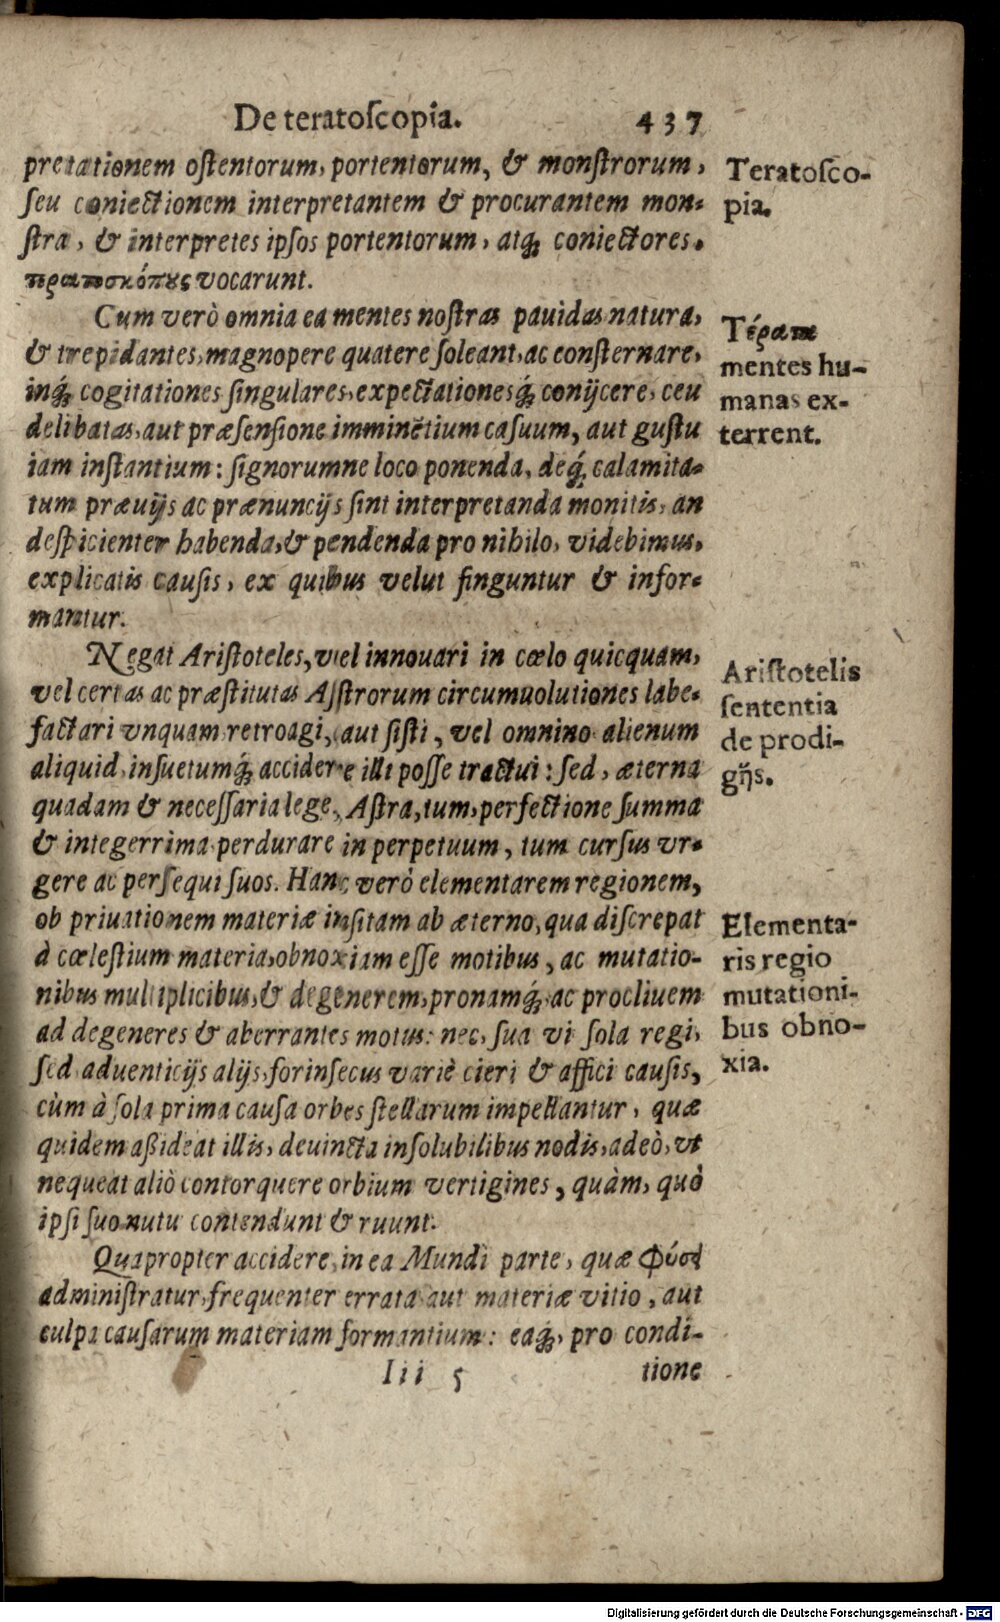 De teratoſcopia. 437
pretationem oſtentorum, portentorum, & monſtrorum,
ſeu coniectionem interpretantem & procurantem mon-
ſtra, & interpretes ipſos portentorum, atq́; coniectores.
vocarunt.
Cum verò omnia ea mentes noſtras pauidas natura,
& trepidantes, magnopere quatere ſoleant, ac conſternare,
inq́; cogitationes ſingulares, expectationesq́; conijcere, ceu
delibatas, aut præſenſione imminẽtium caſuum, aut guſtu
iam inſtantium: ſignorumne loco ponenda, deq́; calamita-
tum præuijs ac prænuncijs ſint interpretanda monitis, an
deſpicienter habenda, & pendenda pro nihilo, videbimus,
explicatis cauſis, ex quibus velut finguntur & infor-
mantur.
Negat Ariſtoteles, vel innouari in cœlo quicquam,
vel certas ac præſtitutas Aſtrorum circumuolutiones labe-
factari vnquam retroagi, aut ſiſti, vel omnino alienum
aliquid, inſuetumq́; accidere illi poſſe tractui: ſed, æterna
quadam & neceſſaria lege, Aſtra, tum, perfectione ſumma
& integerrima perdurare in perpetuum, tum curſus vr-
gere ac perſequi ſuos. Hanc verò elementarem regionem,
ob priuationem materiæ inſitam ab æterno, qua diſcrepat
à cœleſtium materia, obnoxiam eſſe motibus, ac mutatio-
nibus multiplicibus, & degenerem, pronamq́; ac procliuem
ad degeneres & aberrantes motus: nec, ſua vi ſola regi,
ſed aduenticijs alijs, forinſecus variè cieri & affici cauſis,
cùm à ſola prima cauſa orbes ſtellarum impellantur, quæ
quidem aßideat illis, deuincta inſolubilibus nodis, adeò, vt
nequeat aliò contorquere orbium vertigines, quàm, quò
ipſi ſuo nutu contendunt & ruunt.
Quapropter accidere, in ea Mundi parte, quæ φύσῃ
adminiſtratur, frequenter errata aut materiæ vitio, aut
culpa cauſarum materiam formantium: eaq́;, pro condi-
Iii 5 tione
Teratoſco-
pia.
Τέρατα
mentes hu-
manas ex-
terrent.
Ariſtotelis
ſententia
de prodi-
gijs.
Elementa-
ris regio
mutationi-
bus obno-
xia.
Digitalisierung gefördert durch die Deutsche Forschungsgemeinschaft - DFG